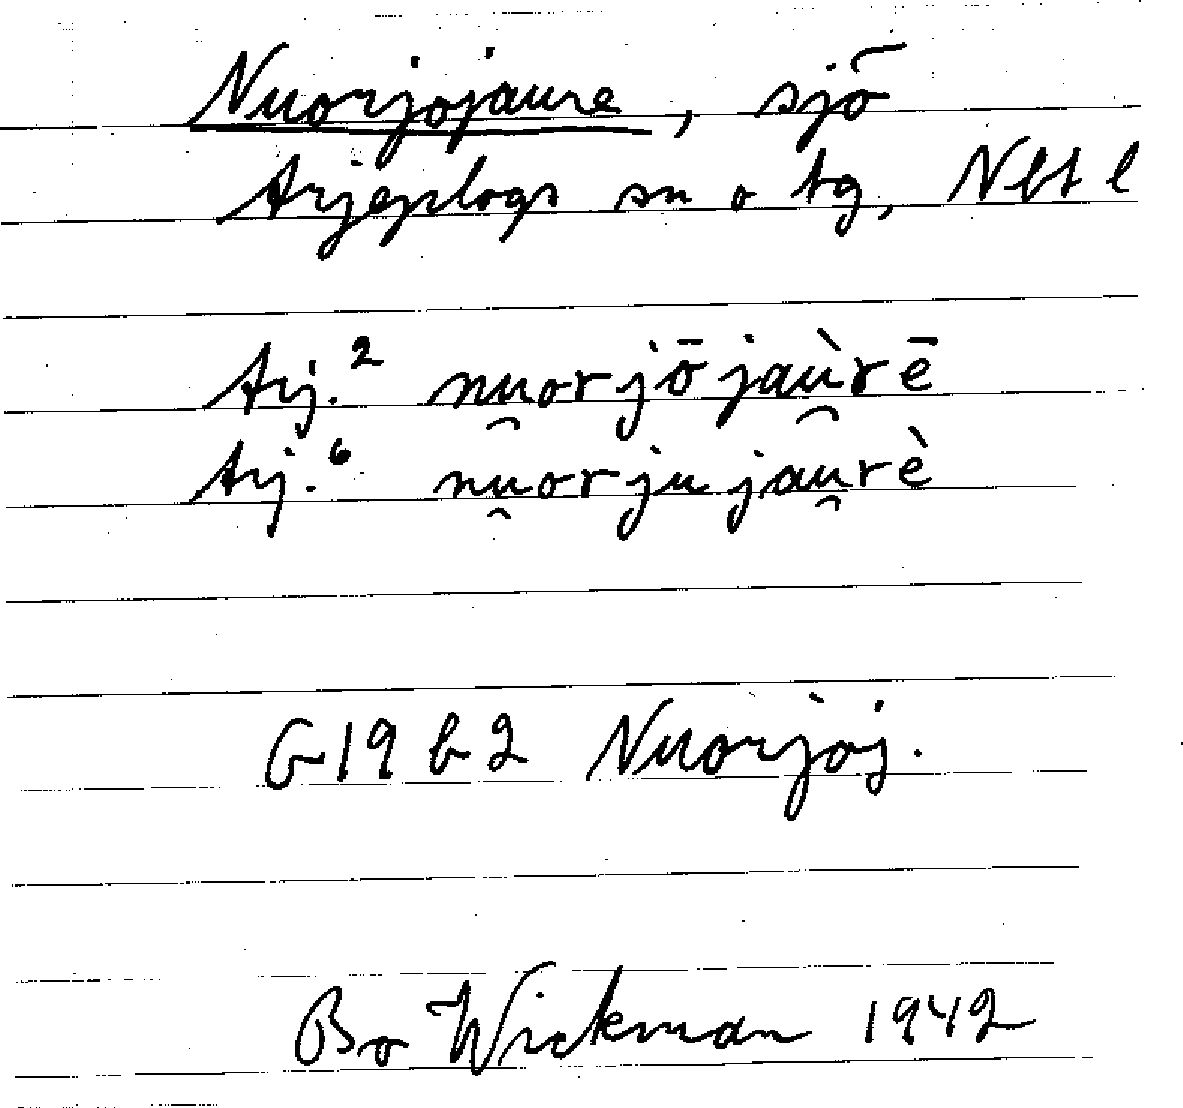 Nuorjojaure, sjö
Arjeplogs sn o tg, Nbt l
Arj.² nu̯orjōjaù̯rē
Arj.⁶ nu̯orjujau̯rè
G19 b2 Nuorjoj.
Bo Wickman 1942